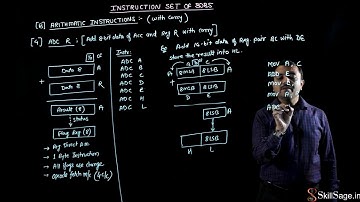 INSTRUCTION SET OF 8085
[B] ARITHMETIC INSTRUCTIONS :- (with carry)
[4] ADC R ; [Add 8-bit data of Acc and Reg R with carry]
Data 8 A
+
Data 8 R
Result (8) A
↓ status
Flag Reg (8)
→ Reg Direct A.M
→ 1 Byte Instruction
→ All flags are change
→ opcode fetch M/C (4T)
Instr:
ADC A
ADC B
ADC C
ADC D
ADC E
ADC H
ADC L
Ex Add 16-bit data of Reg. pair BC with DE
store the result into HL.
8MSB 8LSB
+
8MSB 8LSB
D E
8LSB A
8LSB
H L
MOV A, C
ADD E
MOV
MOV A
ADC
SkillSage.in